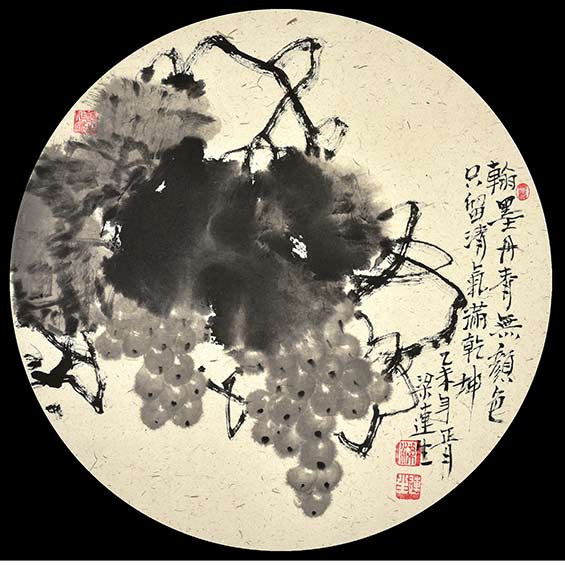 翰墨丹青無顏色
只留清氣滿乾坤
乙未年
梁連生